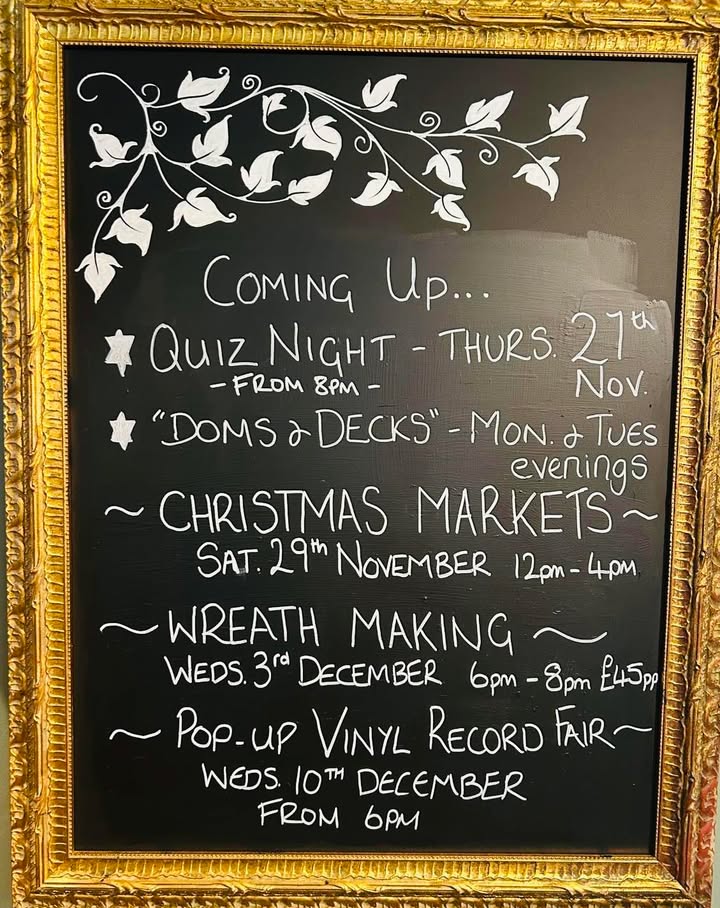 COMING UP...
QUIZ NIGHT - THURS. 27th
- FROM 8PM - NOV.
"DOMS & DECKS" - MON. & TUES
evenings
~ CHRISTMAS MARKETS ~
SAT. 29th NOVEMBER 12pm - 4pm
~ WREATH MAKING ~
WEDS. 3rd DECEMBER 6pm - 8pm £45pp
~ POP-UP VINYL RECORD FAIR ~
WEDS. 10TH DECEMBER
FROM 6PM